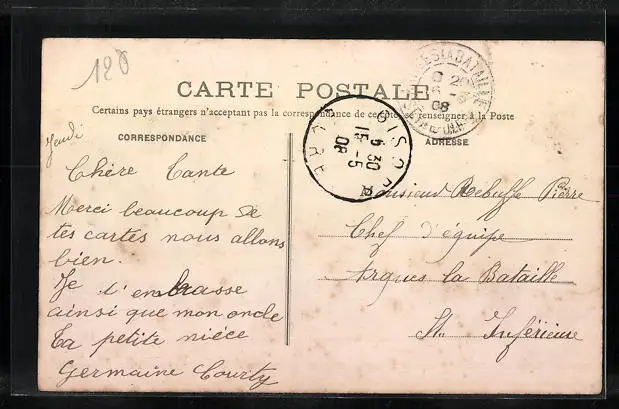 120
CARTE POSTALE
Certains pays étrangers n'acceptant pas la correspondance de ce côté, se renseigner à la Poste
CORRESPONDANCE
ADRESSE
Jeudi
Chère Tante
Merci beaucoup de
tes cartes nous allons
bien.
Je t'embrasse
ainsi que mon oncle
Ta petite nièce
Germaine Courty
Monsieur Rebuffe Pierre
Chef d'équipe
Arques la Bataille
St. Inférieure
GISORS
6 30
15 - 5
08
EURE
ARQUES LA BATAILLE
08